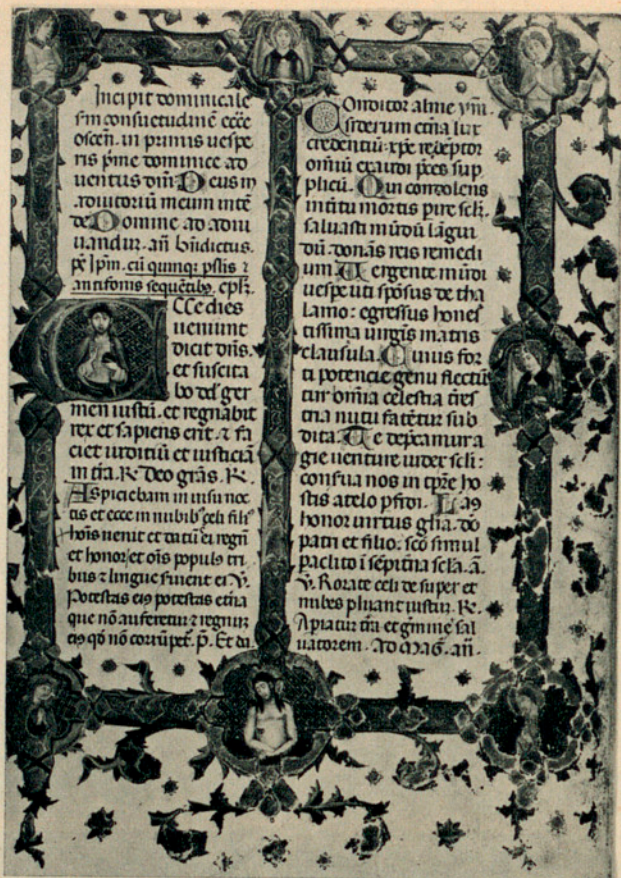 Incipit dominicale
s̄m consuetudinē ecc̄e
oscēn. in primis uespe
ris p̄me dominice ad
uentus dn̄i. Deus in
adiutoriū meum intē
de. Domine ad adiu
uandū. an̄ bn̄dictus.
cū quinqꝫ psl̄is ⁊
antifonis sequētibꝰ. epl̄a.
ECce dies
ueniunt
dicit dn̄s.
et suscita
bo dd̄ ger
men iustū. et regnabit
rex et sapiens erit. ⁊ fa
ciet iuditiū et iusticiā
in tr̄a. R̷. Deo gr̄as. R̷.
Aspiciebam in uisu noc
tis et ecce in nubibꝰ celi filiꝰ
hōis uenit et datū ē ei regnū
et honor et oīs populꝰ tri
bus ⁊ lingue seruient ei. V̷.
Potestas eiꝰ potestas etn̄a
que nō auferetur ⁊ regnum
eiꝰ qd̄ nō corrūpet̄. p̄. Et da
COnditor alme
siderum etn̄a lux
credentiū. xp̄e redeptor
omīū exaudi p̄ces sup
plicū. Qui condolens
interitu mortis pire scl̄i.
saluasti mūdū lāgui
dū. donās reis remedi
um. Uergente mūdi
uesꝑe uti spōsus de tha
lamo: egressus hones
tissima uirgīs matris
clausula. Cuius for
ti potencie genu flectū
tur om̄ia celestia tr̄es
tria nutu fatētur sub
dita. Te depcamur a
gie uenture iudex scl̄i:
conserua nos in tp̄re ho
stis a telo p̄fidi. Laꝰ
honor uirtus gl̄ia. dō
patri et filio. scō simul
paclito ī sēpitn̄a scl̄a. ā.
V̷. Rorate celi de super et
nubes pluant iustū. R̷.
Apiatur tr̄a et gm̄inet sal
uatorem. ad maḡ. an̄.